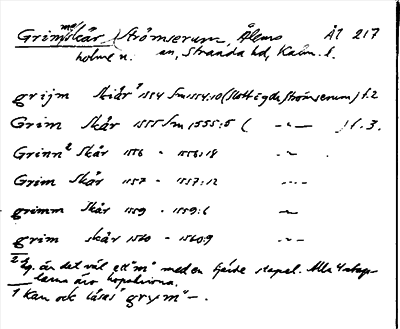 Grimskär, Strömserum, Ålems ÅÏ 217
holme n. sn, Stranda hd, Kalm. l.
grijm skiär¹ 1554 Sm 1554:10 (Slott egde Strömserum) f. 2
Grim Skår 1555 Sm 1555:5 ( -"- ) f. 3.
Grinn² Skår 1556 - 1556:18 -"-
Grim Skår 1557 - 1557:12 -"-
grimm Skår 1559 - 1559:6 -"-
grim skår 1560 - 1560:9 -"-
² Eg. är det väl ett "m" med en fjärde stapel. Alla 4 stap-
larna äro hopskrivna.
¹ Kan ock läsas "grym" -.